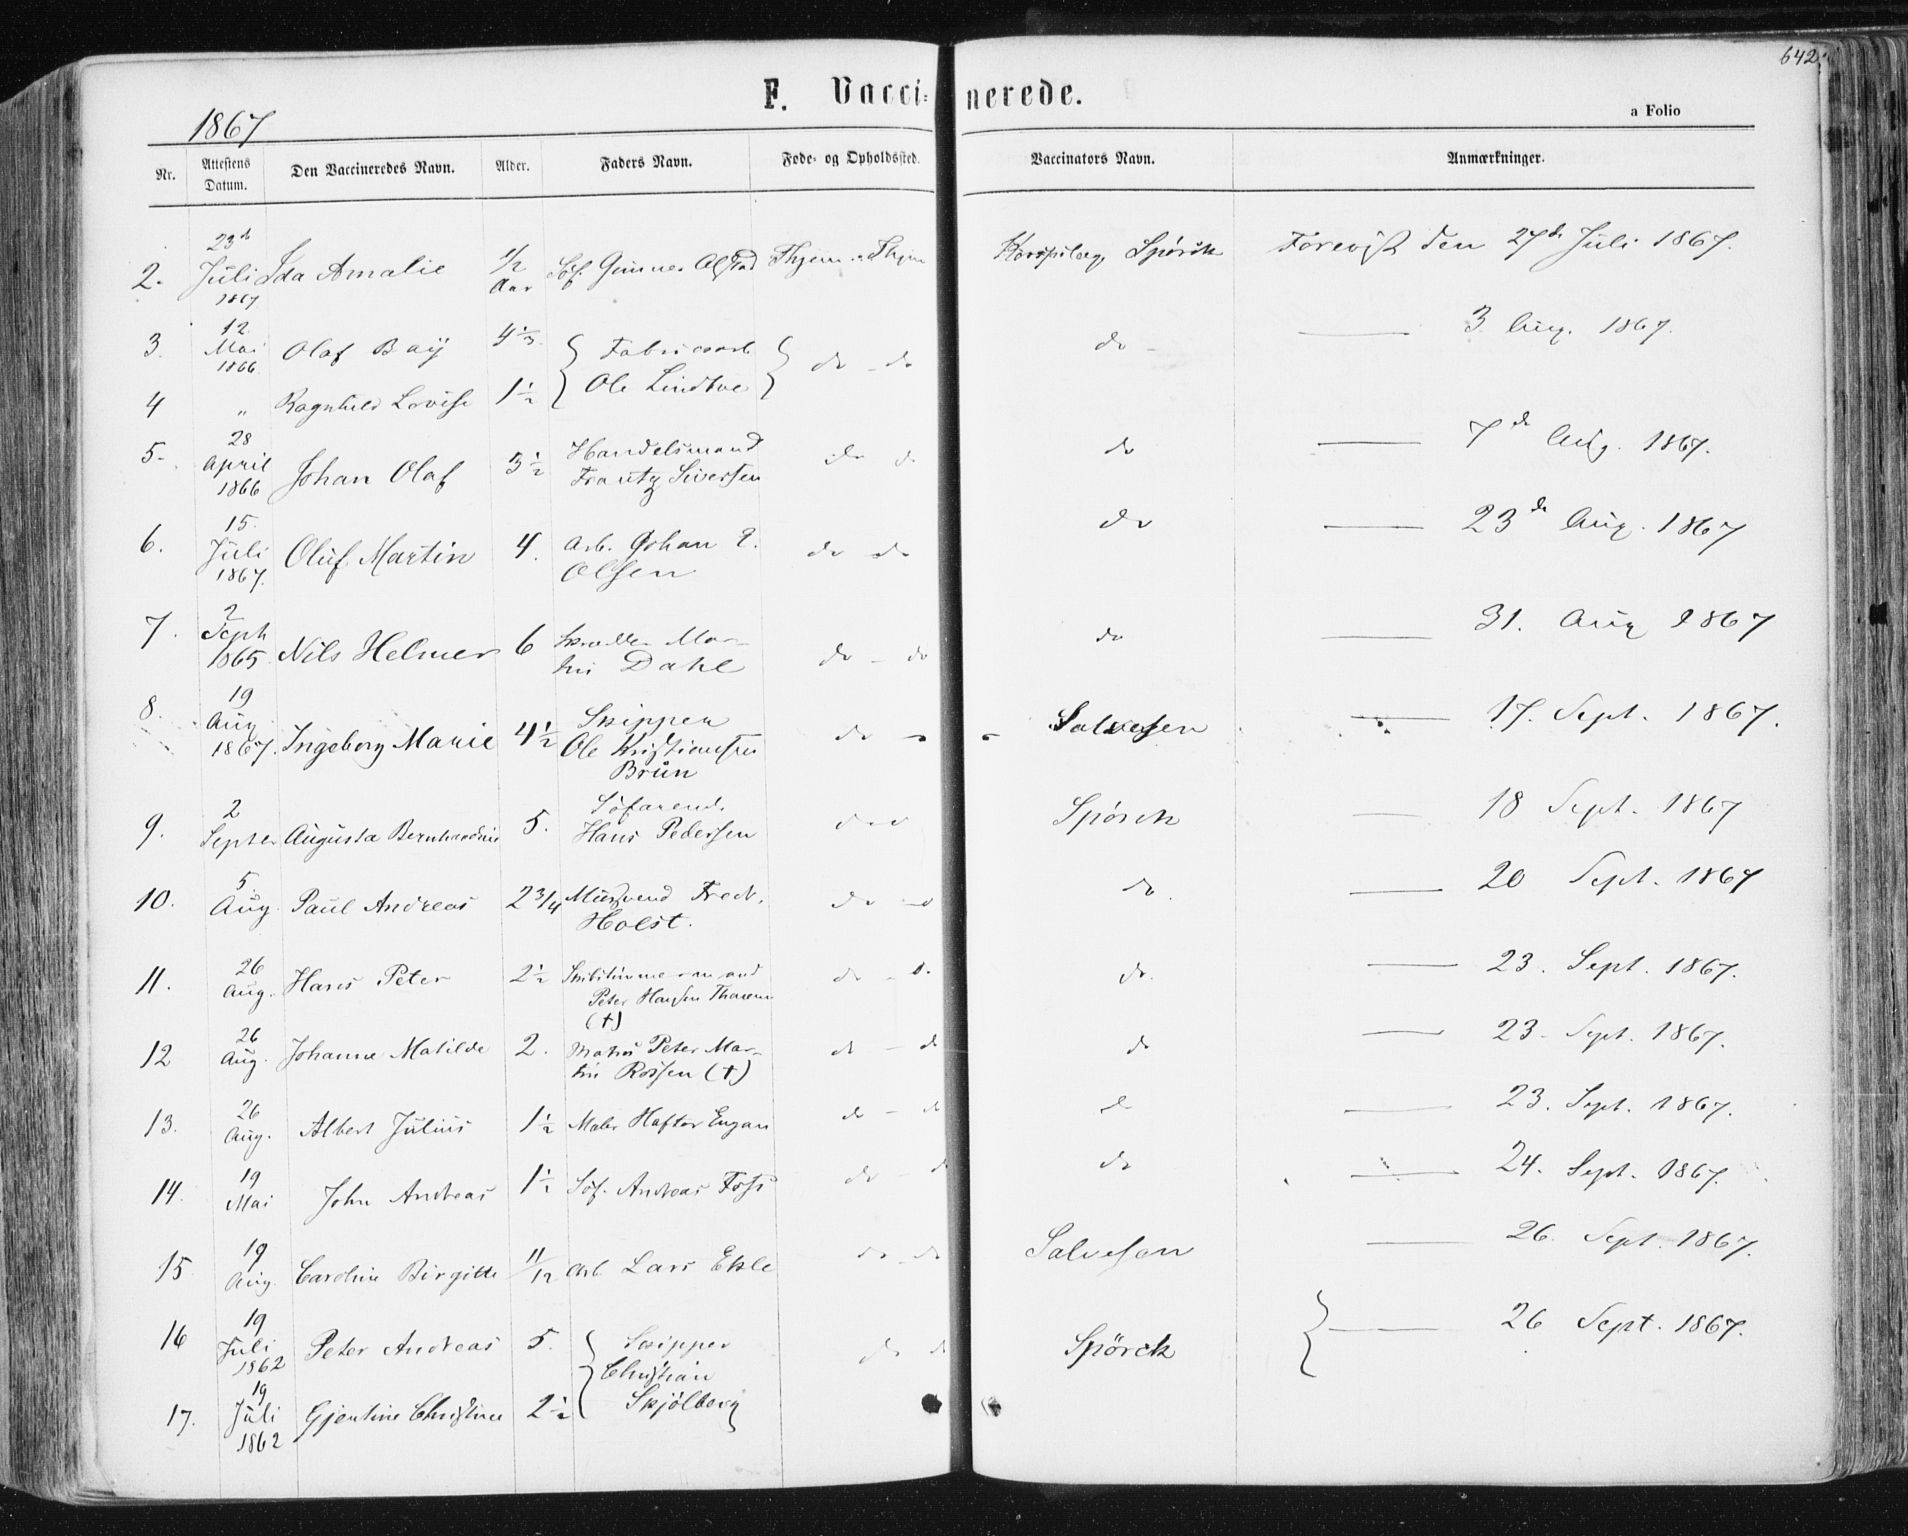 642
F. Vaccinerede.
a Folio
1867
Nr. Attestens Datum. Den Vaccineredes Navn. Alder. Faders Navn. Føde- og Opholdssted. Vaccinators Navn. Anmærkninger.
2. 23de Juli 1867 Ida Amalie 1/2 Aar Søf. Gunner Thjem Thjem Spörck Forevist den 27de Juli 1867.
3. 12. Mai 1866. Olaf Baÿ do - do do - 3 Aug. 1867.
{ Fabricarb. Ole }
4 " Ragnhild Lovise 1 1/2
5. 28 April 1866 Johan Olaf 3 1/2 Handelsmand Frantz Sivertsen do do do 7de Aug. 1867.
6. 15. Juli 1867. Oluf Martin 4. Arb. Johan Olsen do do do 23de Aug. 1867
7. 2 Septr 1865 Nils Helmer 6 Skrædder Martin Dahl do - do do 31. Aug 1867
8. 19 Aug 1867. Ingeborg Marie 4 1/2 Skipper Ole Kristiansen Brun do - Salvesen 17. Sept. 1867.
9. 2 Septer Augusta Bernhardine 5. Söfarend. Hans Pedersen do Spörck 18 Sept. 1867
10. 5. Aug. Paul Andreas 2 3/4 Fredr. Holst. do do do 20 Sept. 1867
11. 26 Aug. Hans Peter 2 1/2 Skibstimmermand Peter (†) do - do do. 23. Sept. 1867.
12 26 Aug. Johanne Matilde 2. Matros Peter Martin (†) do - do do 23. Sept. 1867.
13. 26 Aug. Albert Julius 1 1/2 Maler Haftor Engan do - do do 23. Sept. 1867.
14. 19 Mai John Andreas 1 1/2 Söf. Andreas Foss do - do do 24. Sept. 1867.
15 19 Aug. Caroline Birgitte 11/12 Arb. Lars Ekle do - do Salvesen 26. Sept. 1867.
16 19 Juli 1862 Peter Andreas 5. { Skipper Christian Skjölberg do do Spörck { 26 Sept. 1867.
17. 19 Juli 1862 Gjertine Christine 2 1/2